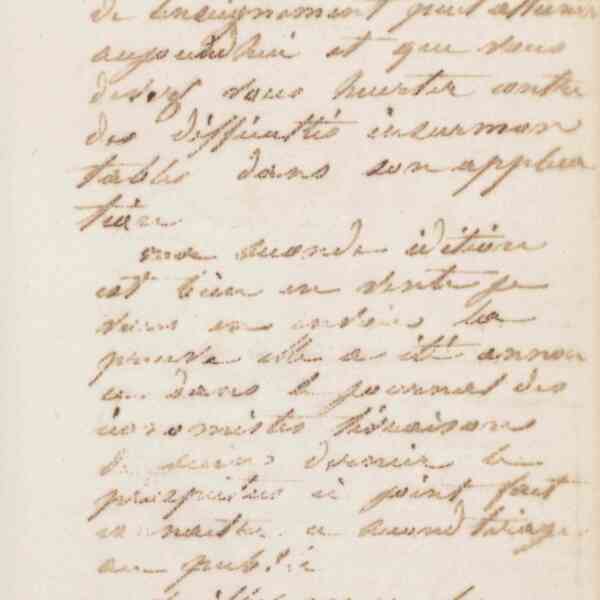 de Enseignement peut assurer
aujourd'hui et que vous
devez vous heurter contre
des difficultés insurmon
tables dans son applica
tion
ma seconde édition
est bien en vente je
vous en envoie la
preuve elle a été annon
cé dans le journal des
économistes livraisons
de dernier le
prospectus ci joint fait
connaître ce second tirage
au public